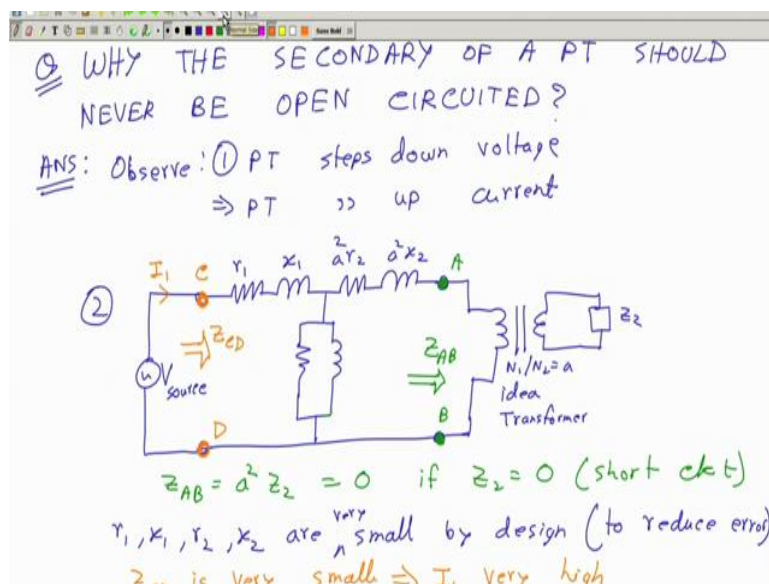 Q WHY THE SECONDARY OF A PT SHOULD
NEVER BE OPEN CIRCUITED?
ANS: Observe: ① PT steps down voltage
⇒ PT ,, up current
②
I₁ C r₁ x₁ a²r₂ a²x₂ A
Z_CD
Z_AB
Z₂
V source
N₁/N₂=a
idea
Transformer
D B
Z_AB = a² Z₂ = 0 if Z₂ = 0 (short ckt)
r₁, x₁, r₂, x₂ are very small by design (to reduce error)
is very small ⇒ I very high